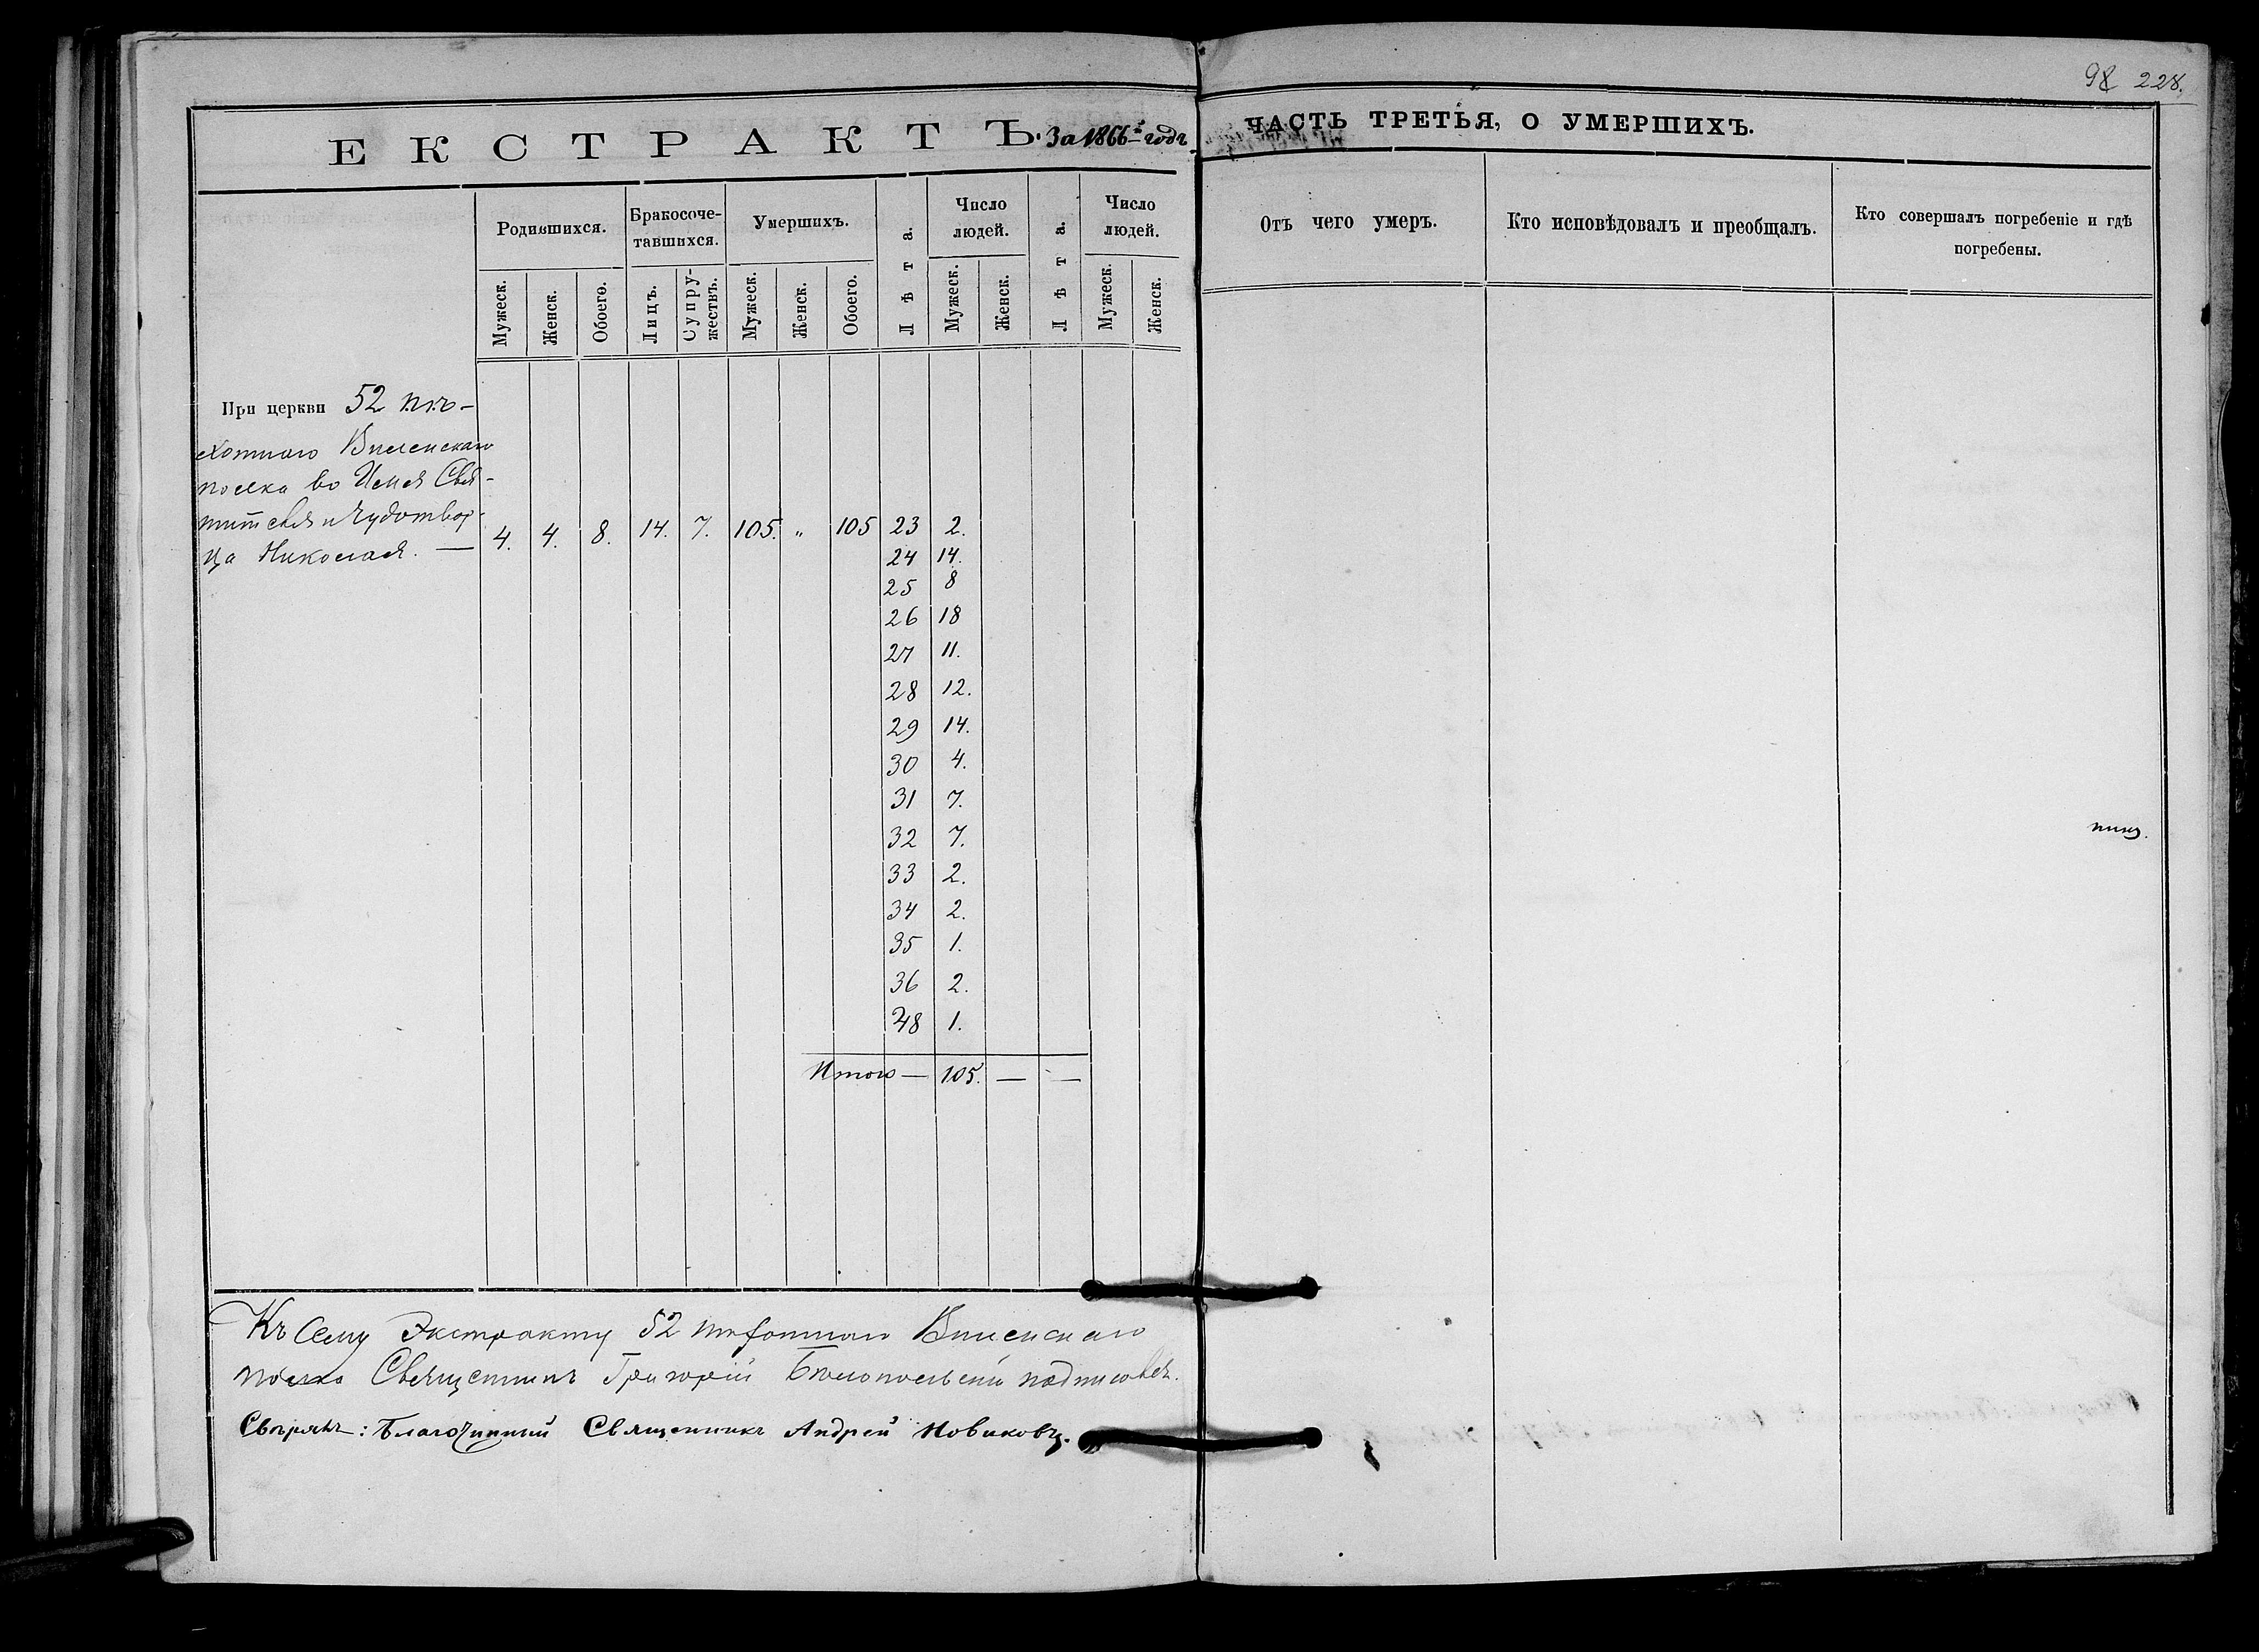 98 228.
ЕКСТРАКТЪ. За 1866й годъ
Родившихся. Бракосоче-тавшихся. Умершихъ. Лѣта. Число людей. Лѣта. Число людей.
Мужеск. Женск. Обоего. Лицъ. Супружествъ. Мужеск. Женск. Обоего. Мужеск. Женск. Мужеск. Женск.
При церкви 52 пѣ-
хотнаго Виленскаго
полка во Имя Свя-
тителя и Чудотвор-
ца Николая. —
4. 4. 8. 14. 7. 105. „ 105 23 2.
24 14.
25 8
26 18
27 11.
28 12.
29 14.
30 4.
31 7.
32 7.
33 2.
34 2.
35 1.
36 2.
48 1.
Итого — 105. — —
Къ сему Экстракту 52 пѣхотнаго Виленскаго
полка Священникъ Григорій Бѣлопольскій подписовся.
Свѣрялъ: Благочинный Священникъ Андрей Новиковъ.
ЧАСТЬ ТРЕТЬЯ, О УМЕРШИХЪ.
Отъ чего умеръ. Кто исповѣдовалъ и преобщалъ. Кто совершалъ погребеніе и гдѣ
погребены.